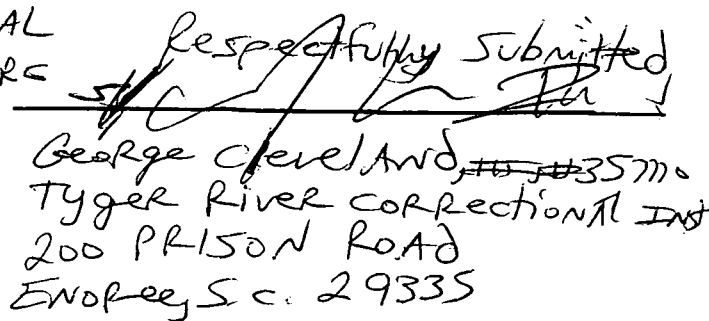 AL
RC
Respectfully Submitted
s/
George Cleveland,
Tyger River Correctional Inst
200 PRISON ROAD
ENOREE, S.C. 29335